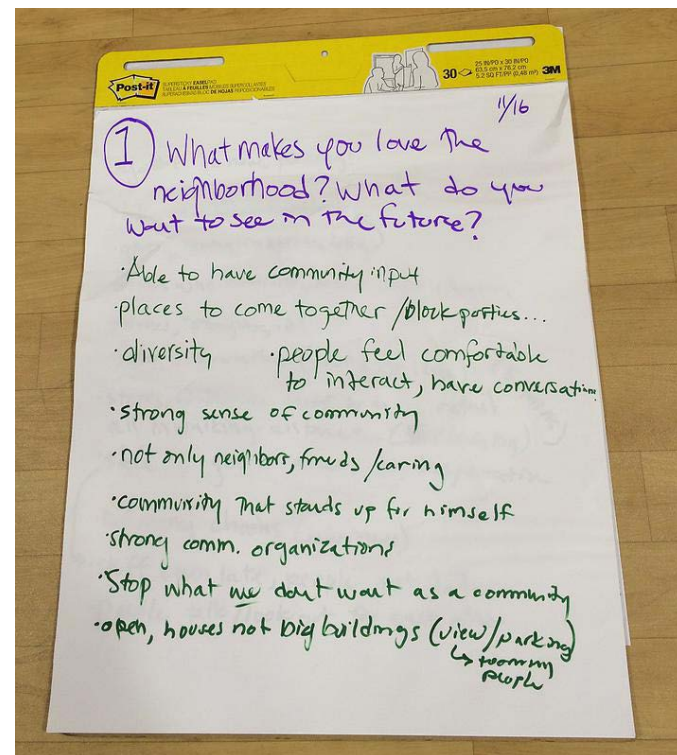 Post-it
SUPERSTICKY EASEL PAD
30
25 IN/PO x 30 IN/PO
63,5 cm x 76,2 cm
5.2 SQ FT/PP (0,48 m²)
3M
11/16
1 What makes you love the
neighborhood? What do you
want to see in the future?
·Able to have community input
·places to come together/block parties...
·diversity ·people feel comfortable
to interact, have conversations
·strong sense of community
·not only neighbors, friends/caring
·community that stands up for himself
·strong comm. organizations
·Stop what we dont want as a community
·open, houses not big buildings (view/parking)
↳ too many
people